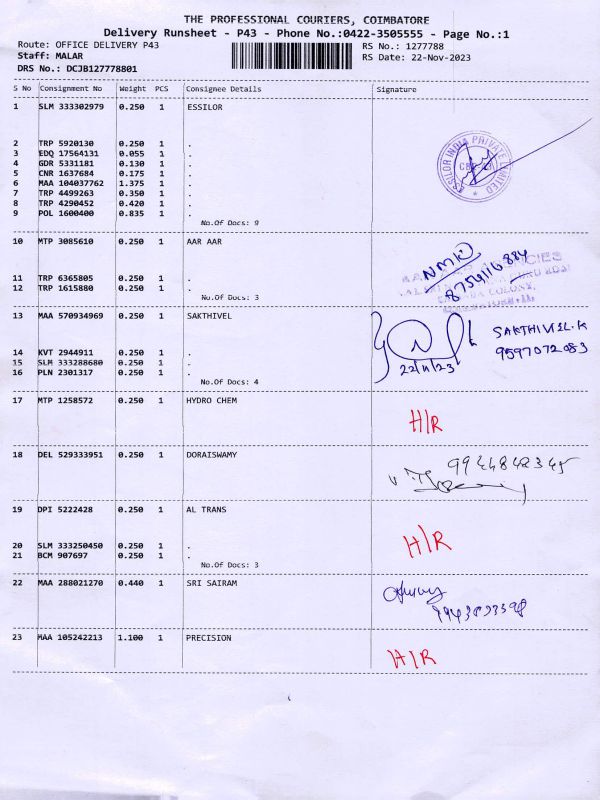 THE PROFESSIONAL COURIERS, COIMBATORE
Delivery Runsheet - P43 - Phone No.:0422-3505555 - Page No.:1
Route: OFFICE DELIVERY P43 RS No.: 1277788
Staff: MALAR RS Date: 22-Nov-2023
DRS No.: DCJB127778801
S No Consignment No Weight PCS Consignee Details Signature
1 SLM 333302979 0.250 1 ESSILOR
2 TRP 5920130 0.250 1 .
3 EDQ 17564131 0.055 1 .
4 GDR 5331181 0.130 1 .
5 CNR 1637684 0.175 1 .
6 MAA 104037762 1.375 1 .
7 TRP 4499263 0.350 1 .
8 TRP 4290452 0.420 1 .
9 POL 1600400 0.835 1 .
No.Of Docs: 9
ESSILOR INDIA PRIVATE LIMITED
10 MTP 3085610 0.250 1 AAR AAR
NMK
8754116884
11 TRP 6365805 0.250 1 .
12 TRP 1615880 0.250 1 .
No.Of Docs: 3
13 MAA 570934969 0.250 1 SAKTHIVEL
SAKTHIVEL.K
9597072083
22/11/23
14 KVT 2944911 0.250 1 .
15 SLM 333288680 0.250 1 .
16 PLN 2301317 0.250 1 .
No.Of Docs: 4
17 MTP 1258572 0.250 1 HYDRO CHEM
H/R
18 DEL 529333951 0.250 1 DORAISWAMY
9944842345
19 DPI 5222428 0.250 1 AL TRANS
H/R
20 SLM 333250450 0.250 1 .
21 BCM 907697 0.250 1 .
No.Of Docs: 3
22 MAA 288021270 0.440 1 SRI SAIRAM
23 MAA 105242213 1.100 1 PRECISION
H/R